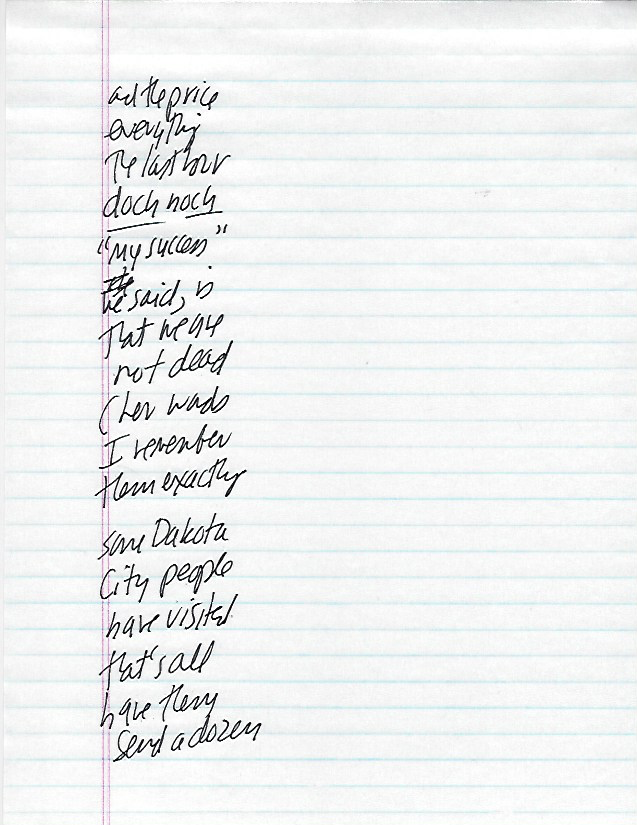 and the price
everything
the last hour
doch noch
"My success"
he said, is
that we are
not dead
(her words
I remember
them exactly
some Dakota
City people
have visited
that's all
have them
send a dozen